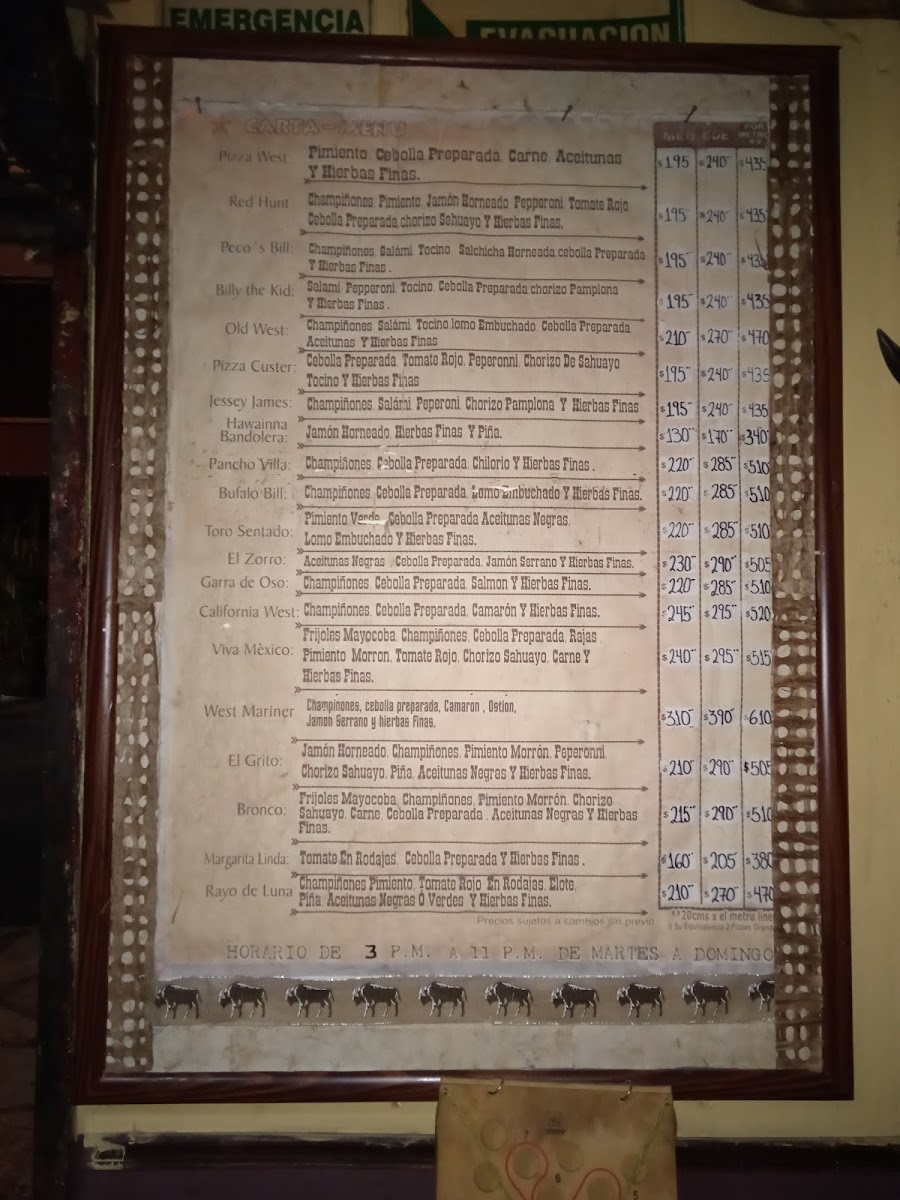 EMERGENCIA
EVACUACION
CARTA-MENU
MED. GDE. POR METRO
Pizza West Pimiento, Cebolla Preparada, Carne, Aceitunas $195 $240 $435
Y Hierbas Finas.
Red Hunt Champiñones, Pimiento, Jamón Horneado, Pepperoni, Tomate Rojo $195 $240 $435
Cebolla Preparada,chorizo Sahuayo Y Hierbas Finas.
Peco´s Bill: Champiñones, Salámi, Tocino Salchicha Horneada cebolla Preparada $195 $240 $435
Y Hierbas Finas .
Billy the Kid: Salami, Pepperoni, Tocino, Cebolla Preparada chorizo Pamplona $195 $240 $435
Y Hierbas Finas .
Old West: Champiñones, Salámi, Tocino,lomo Embuchado, Cebolla Preparada, $210 $270 $470
Aceitunas Y Hierbas Finas
Pizza Custer: Cebolla Preparada, Tomate Rojo, Peperonni, Chorizo De Sahuayo $195 $240 $435
Tocino Y Hierbas Finas
Jessey James: Champiñones, Salámi, Peperoni, Chorizo Pamplona Y Hierbas Finas $195 $240 $435
Hawainna
Bandolera: Jamón Horneado, Hierbas Finas Y Piña. $130 $170 $340
Pancho Villa: Champiñones, Cebolla Preparada, Chilorio Y Hierbas Finas . $220 $285 $510
Bufalo Bill: Champiñones, Cebolla Preparada, Lomo Embuchado Y Hierbas Finas. $220 $285 $510
Toro Sentado: Pimiento Verde, Cebolla Preparada Aceitunas Negras, $220 $285 $510
Lomo Embuchado Y Hierbas Finas.
El Zorro: Aceitunas Negras , Cebolla Preparada, Jamón Serrano Y Hierbas Finas. $230 $290 $505
Garra de Oso: Champiñones, Cebolla Preparada, Salmon Y Hierbas Finas. $220 $285 $510
California West: Champiñones, Cebolla Preparada, Camarón Y Hierbas Finas. $245 $295 $520
Viva Mèxico: Frijoles Mayocoba, Champiñones, Cebolla Preparada, Rajas $240 $295 $515
Pimiento Morron, Tomate Rojo, Chorizo Sahuayo, Carne Y
Hierbas Finas.
West Mariner Champinones, cebolla preparada, Camaron , Ostion, $310 $390 $610
Jamon Serrano y hierbas Finas.
El Grito: Jamón Horneado, Champiñones, Pimiento Morrón, Peperonni, $210 $290 $505
Chorizo Sahuayo, Piña, Aceitunas Negres Y Hierbas Finas.
Bronco: Frijoles Mayocoba, Champiñones, Pimiento Morrón, Chorizo $215 $290 $510
Sahuayo, Carne, Cebolla Preparada , Aceitunas Negras Y Hierbas
Finas.
Margarita Linda: Tomate En Rodajas, Cebolla Preparada Y Hierbas Finas . $160 $205 $380
Rayo de Luna Champiñones Pimiento, Tomate Rojo En Rodajas, Elote, $210 $270 $470
Piña, Aceitunas Negras Ó Verdes Y Hierbas Finas.
Precios sujetos a cambios sin previo
**20cms x el metro line
Su Equivalencia 2 Pizzas Grand
HORARIO DE 3 P.M. A 11 P.M. DE MARTES A DOMINGO
7
6
5